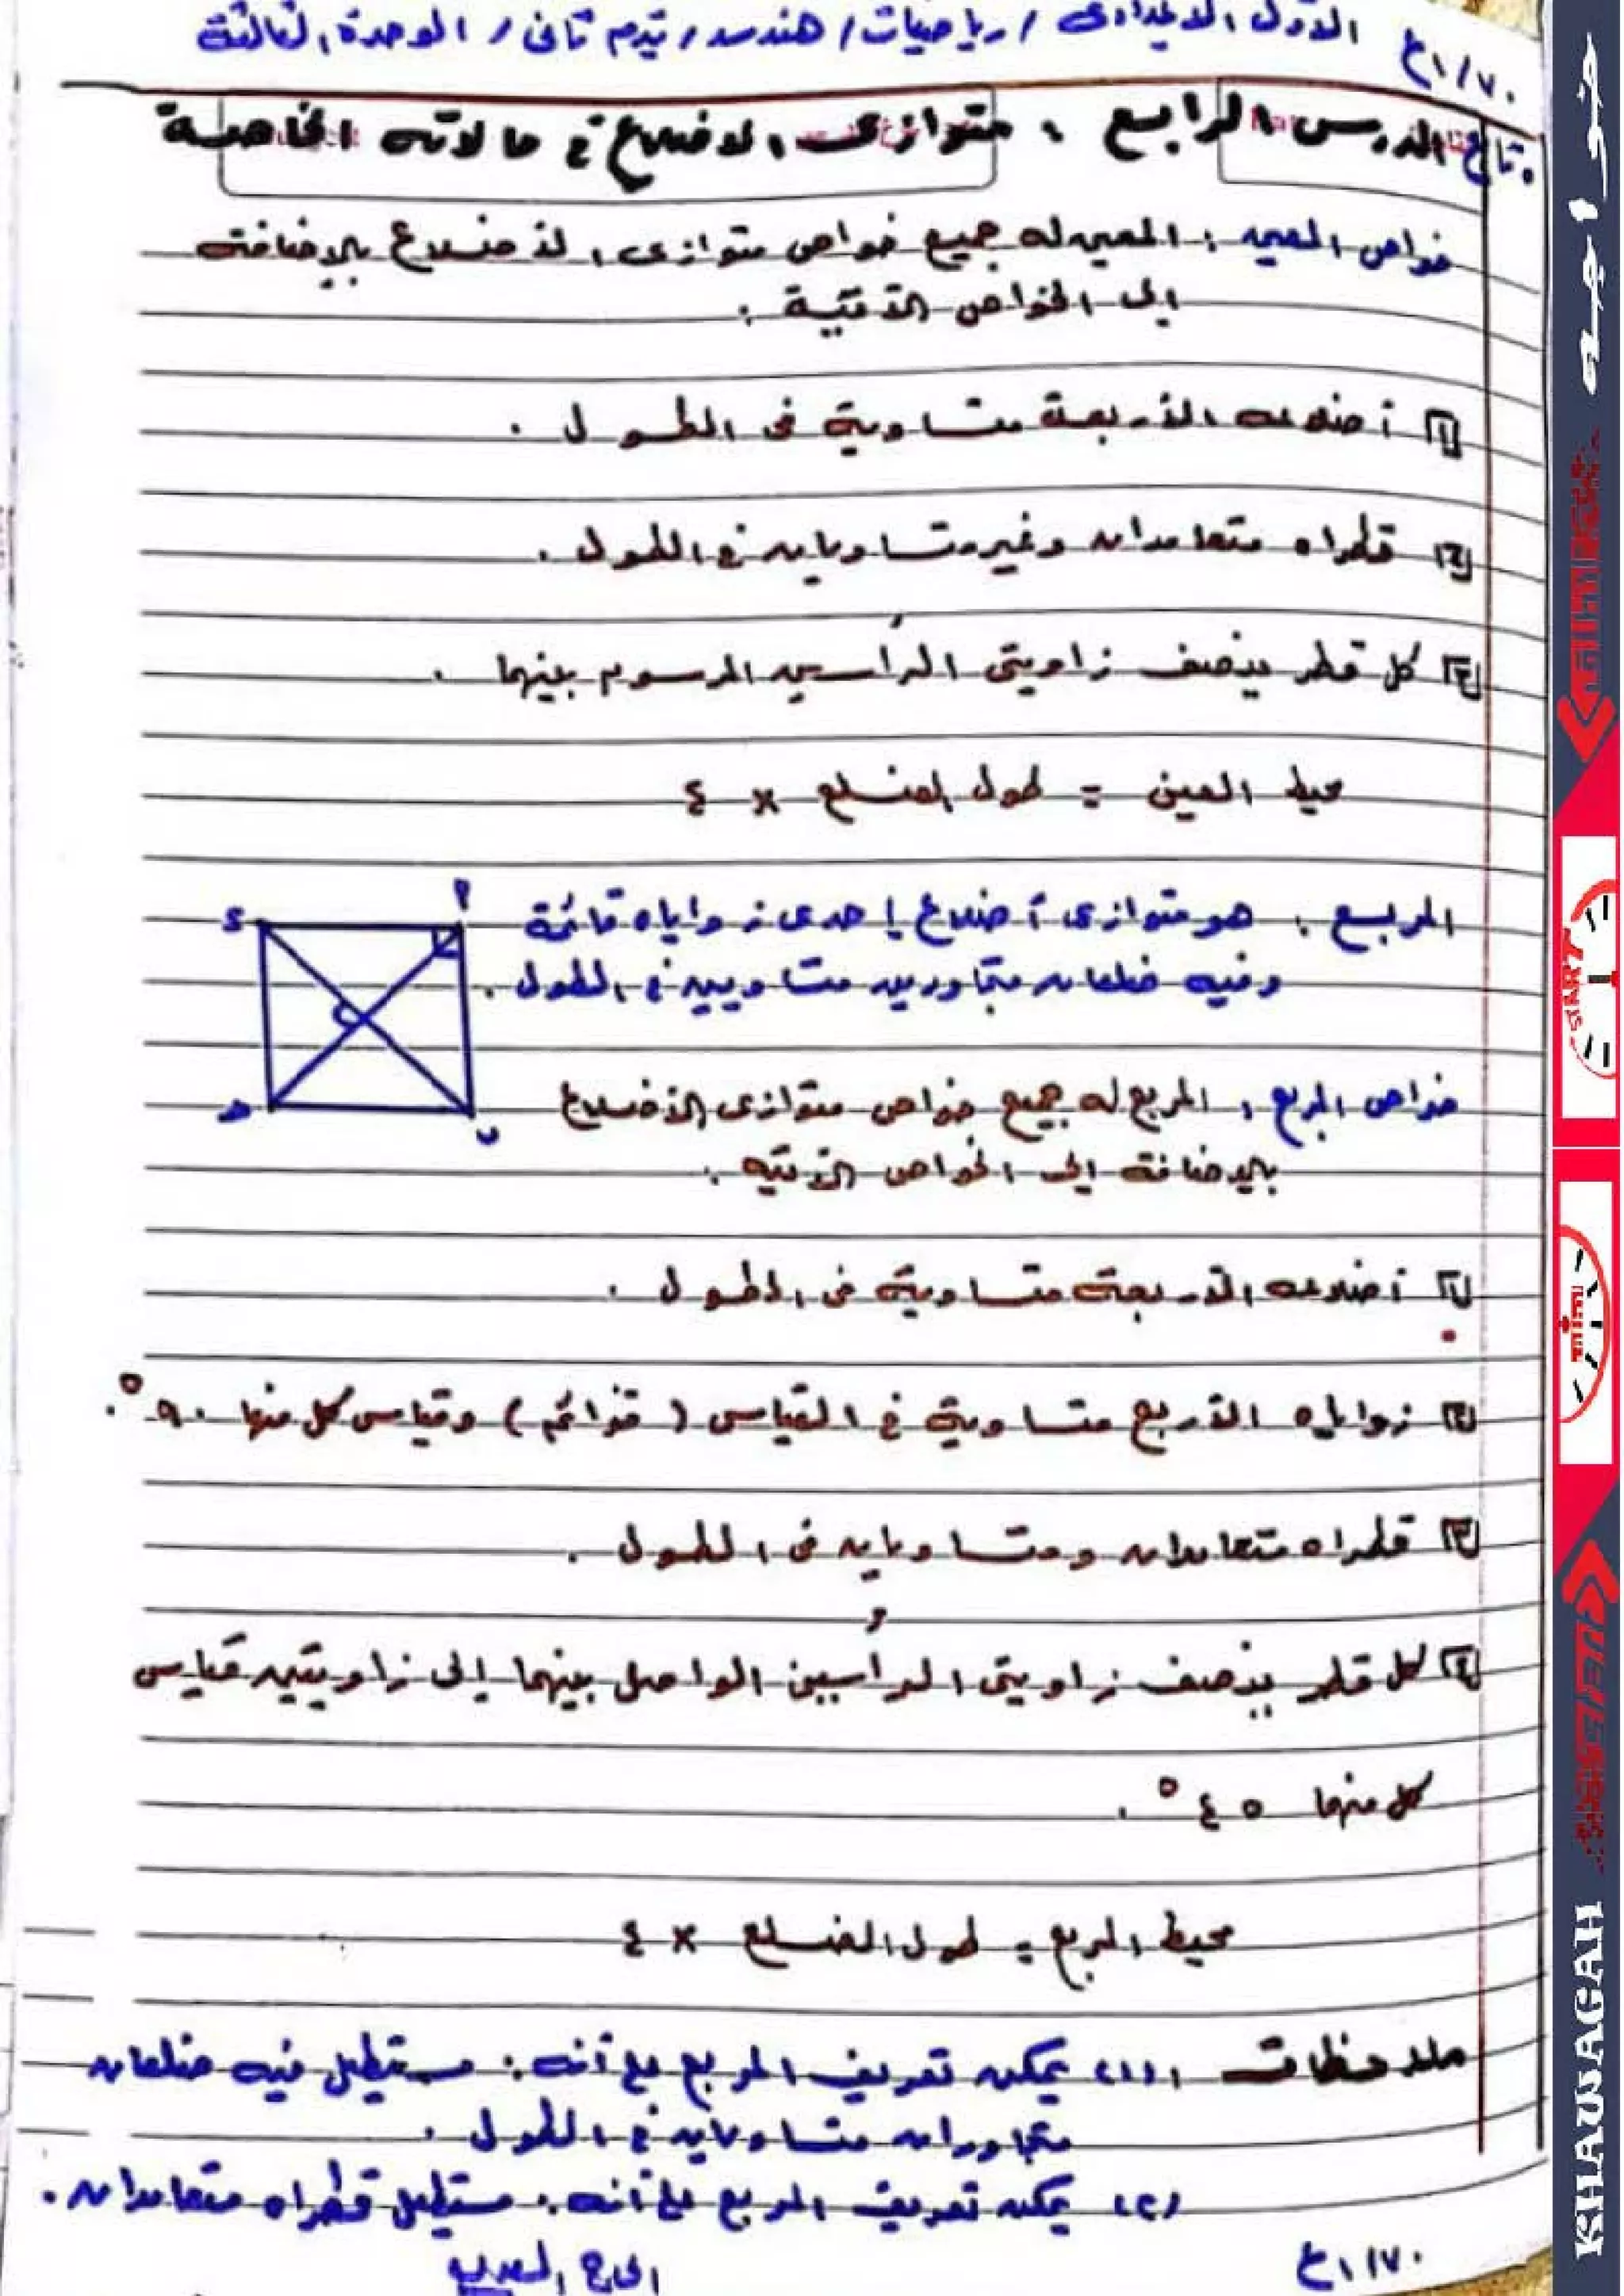 الأول الاعدادى / رياضيات / هندسه / تيرم ثانى / الوحدة الثالثة
١/٧٠ ع
تابع الدرس الرابع : متوازى الاضلاع فى حالاته الخاصة
خواص المعين : المعين له جميع خواص متوازى الأضلاع بالإضافة
إلى الخواص الآتية :
[١] أضلاعه الأربعة متساوية فى الطول .
[٢] قطراه متعامدان وغير متساويان فى الطول .
[٣] كل قطر ينصف زاويتى الرأسين المرسوم بينهما .
محيط المعين = طول الضلع × ٤
المربع : هو متوازى أضلاع إحدى زواياه قائمة
وفيه ضلعان متجاورين متساويين فى الطول .
أ
د
ب
خواص المربع : المربع له جميع خواص متوازى الأضلاع
بالإضافة إلى الخواص الآتيه .
[١] أضلاعه الأربعة متساوية فى الطول .
[٢] زواياه الأربع متساوية فى القياس ( قوائم ) وقياس كل منها ٩٠° .
[٣] قطراه متعامدان ومتساويان فى الطول .
[٤] كل قطر ينصف زاويتى الرأسين الواصل بينهما إلى زاويتين قياس
كل منهما ٤٥° .
محيط المربع = طول الضلع × ٤
ملاحظات : (١) يمكن تعريف المربع على أنه : مستطيل فيه ضلعان
متجاوران متساويان فى الطول .
(٢) يمكن تعريف المربع على أنه : مستطيل قطراه متعامدان .
١/٧٠ ع
خواجه
START
KHAWAGAH